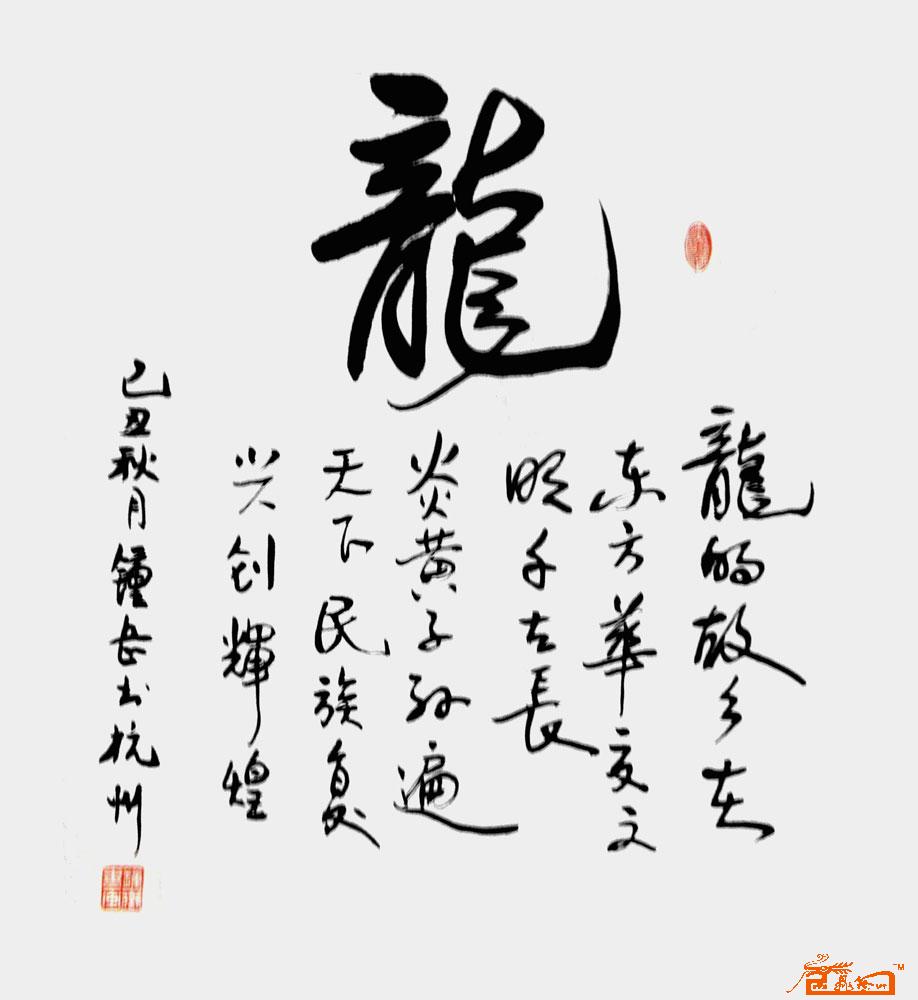 龍
龍的故乡在
东方華夏文
明千古長
炎黄子孙遍
天下民族复
兴创輝煌
己丑秋月鐘岳书杭州